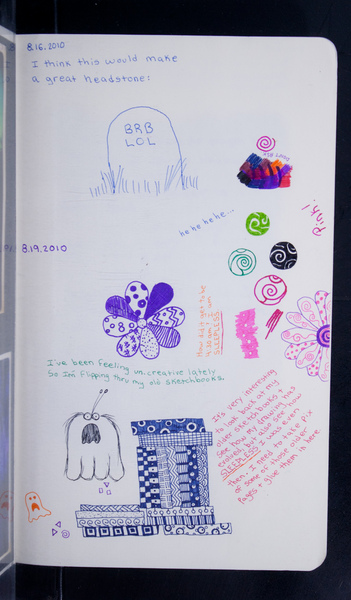 8.16.2010
I think this would make
a great headstone:
BRB
LOL
he he he he...
Pink!
8.19.2010
How did it get to be
SLEEPLESS
I've been feeling un.creative lately
So I'm flipping thru my old sketchbooks.
It's very interesting
to look back at my
older sketchbooks +
see how my drawing has
evolved + also see how
SLEEPLESS I was even
then. I need to take pix
of some of those older
pages + give them in here